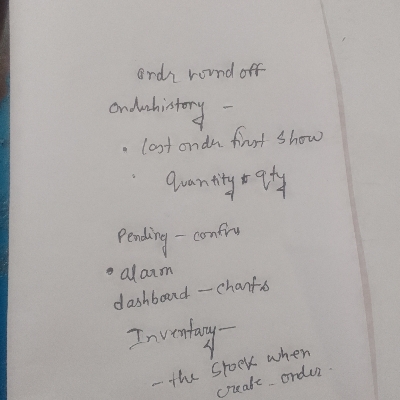 order round off
Orderhistory -
• last order first show
• Quantity qty
Pending - confrm
• alarm
dashboard - charts
Inventary -
- the stock when
create - order.